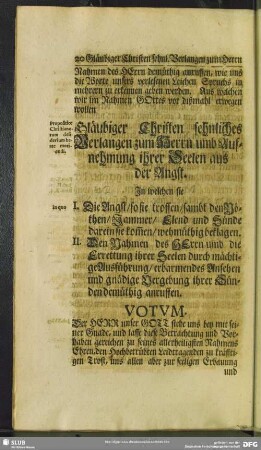 20 Gläubiger Christen sehnl. Verlangen zum Herrn
Nahmen des HErrn demüthig anruffen, wie uns
die Worte unsers verlesenen Leichen Spruchs in
mehrern zu erkennen geben werden. Aus welchen
wir im Nahmen GOttes vor dißmahl erwegen
wollen
Gläubiger Christen sehnliches
Verlangen zum Herrn und Auf-
nehmung ihrer Seelen aus
der Angst.
In welchen sie
in quo
I. Die Angst / so sie troffen / sambt den Nö-
then / Jammer / Elend und Sünde
darein sie kom̃en / wehmüthig beklagen.
II. Den Nahmen des HErrn umb die
Errettung ihrer Seelen durch mächti-
ge Ausführung / erbarmendes Ansehen
und gnädige Vergebung ihrer Sün-
den demüthig anruffen.
VOTUM.
Der HERR unser GOTT stehe uns bey mit sei-
ner Gnade, und lasse diese Betrachtung und Vor-
haben gereichen zu seines allerheiligsten Nahmens
Ehren, den Hochbetrübten Leidtragenden zu kräffti-
gen Trost, uns allen aber zur seeligen Erbauung
und
SLUB